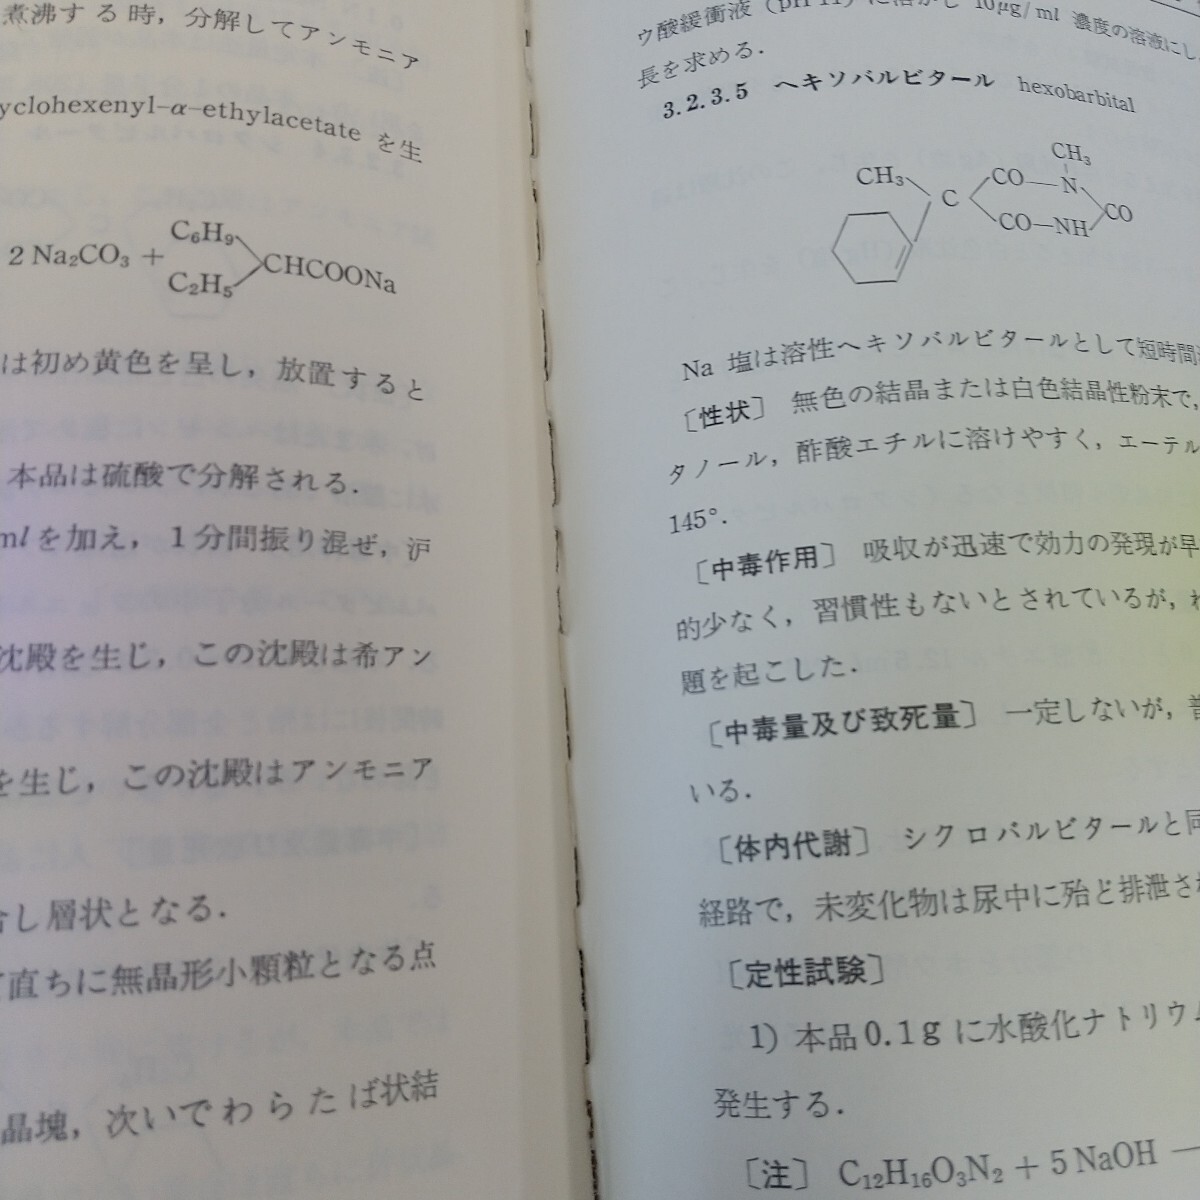 煮沸する時，分解してアンモニア
yclohexenyl-α-ethylacetate を生
2 Na₂CO₃ + C₆H₉ C₂H₅ CHCOONa
は初め黄色を呈し，放置すると
本品は硫酸で分解される．
mlを加え，1分間振り混ぜ，沪
沈殿を生じ，この沈殿は希アン
を生じ，この沈殿はアンモニア
し層状となる．
直ちに無晶形小顆粒となる点
晶塊，次いでわらたば状結
ウ酸緩衝液（pH 11）に溶かし 10μg/ml 濃度の溶液にし
長を求める．
3.2.3.5 ヘキソバルビタール hexobarbital
CH₃
CH₃ C CO—N CO
CO—NH
Na 塩は溶性ヘキソバルビタールとして短時間
［性状］ 無色の結晶または白色結晶性粉末で，
タノール，酢酸エチルに溶けやすく，エーテル
145°．
［中毒作用］ 吸収が迅速で効力の発現が早
的少なく，習慣性もないとされているが，
題を起こした．
［中毒量及び致死量］ 一定しないが，普
いる．
［体内代謝］ シクロバルビタールと同
経路で，未変化物は尿中に殆ど排泄さ
［定性試験］
1) 本品0.1g に水酸化ナトリウム
発生する．
［注］ C₁₂H₁₆O₃N₂ + 5 NaOH —